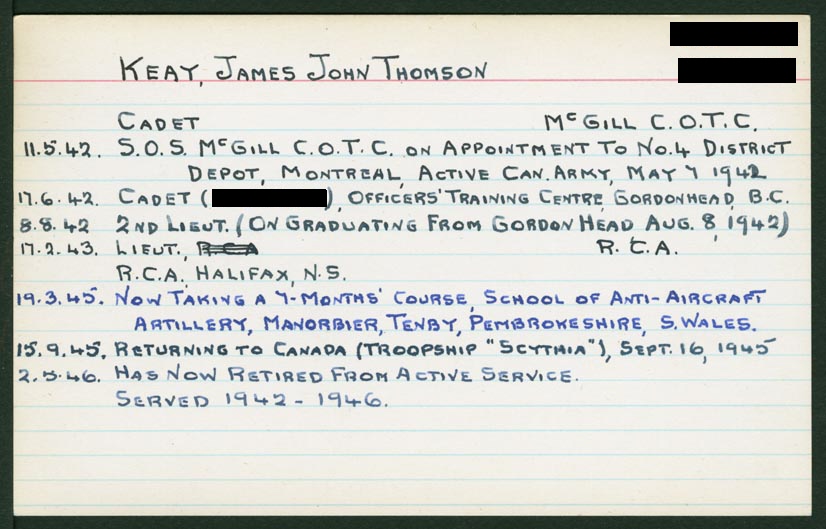 KEAY, JAMES JOHN THOMSON
CADET McGILL C.O.T.C.
11.5.42. S.O.S. McGILL C.O.T.C. ON APPOINTMENT TO NO.4 DISTRICT
DEPOT, MONTREAL, ACTIVE CAN. ARMY, MAY 7 1942
17.6.42. CADET ( ), OFFICERS' TRAINING CENTRE, GORDONHEAD, B.C.
8.8.42 2ND LIEUT. (ON GRADUATING FROM GORDON HEAD AUG. 8, 1942)
17.2.43. LIEUT., R.C.A. R.C.A.
R.C.A., HALIFAX, N.S.
19.3.45. NOW TAKING A 7-MONTHS' COURSE, SCHOOL OF ANTI-AIRCRAFT
ARTILLERY, MANORBIER, TENBY, PEMBROKESHIRE, S. WALES.
15.9.45. RETURNING TO CANADA (TROOPSHIP "SCYTHIA"), SEPT. 16, 1945
2.5.46. HAS NOW RETIRED FROM ACTIVE SERVICE.
SERVED 1942-1946.